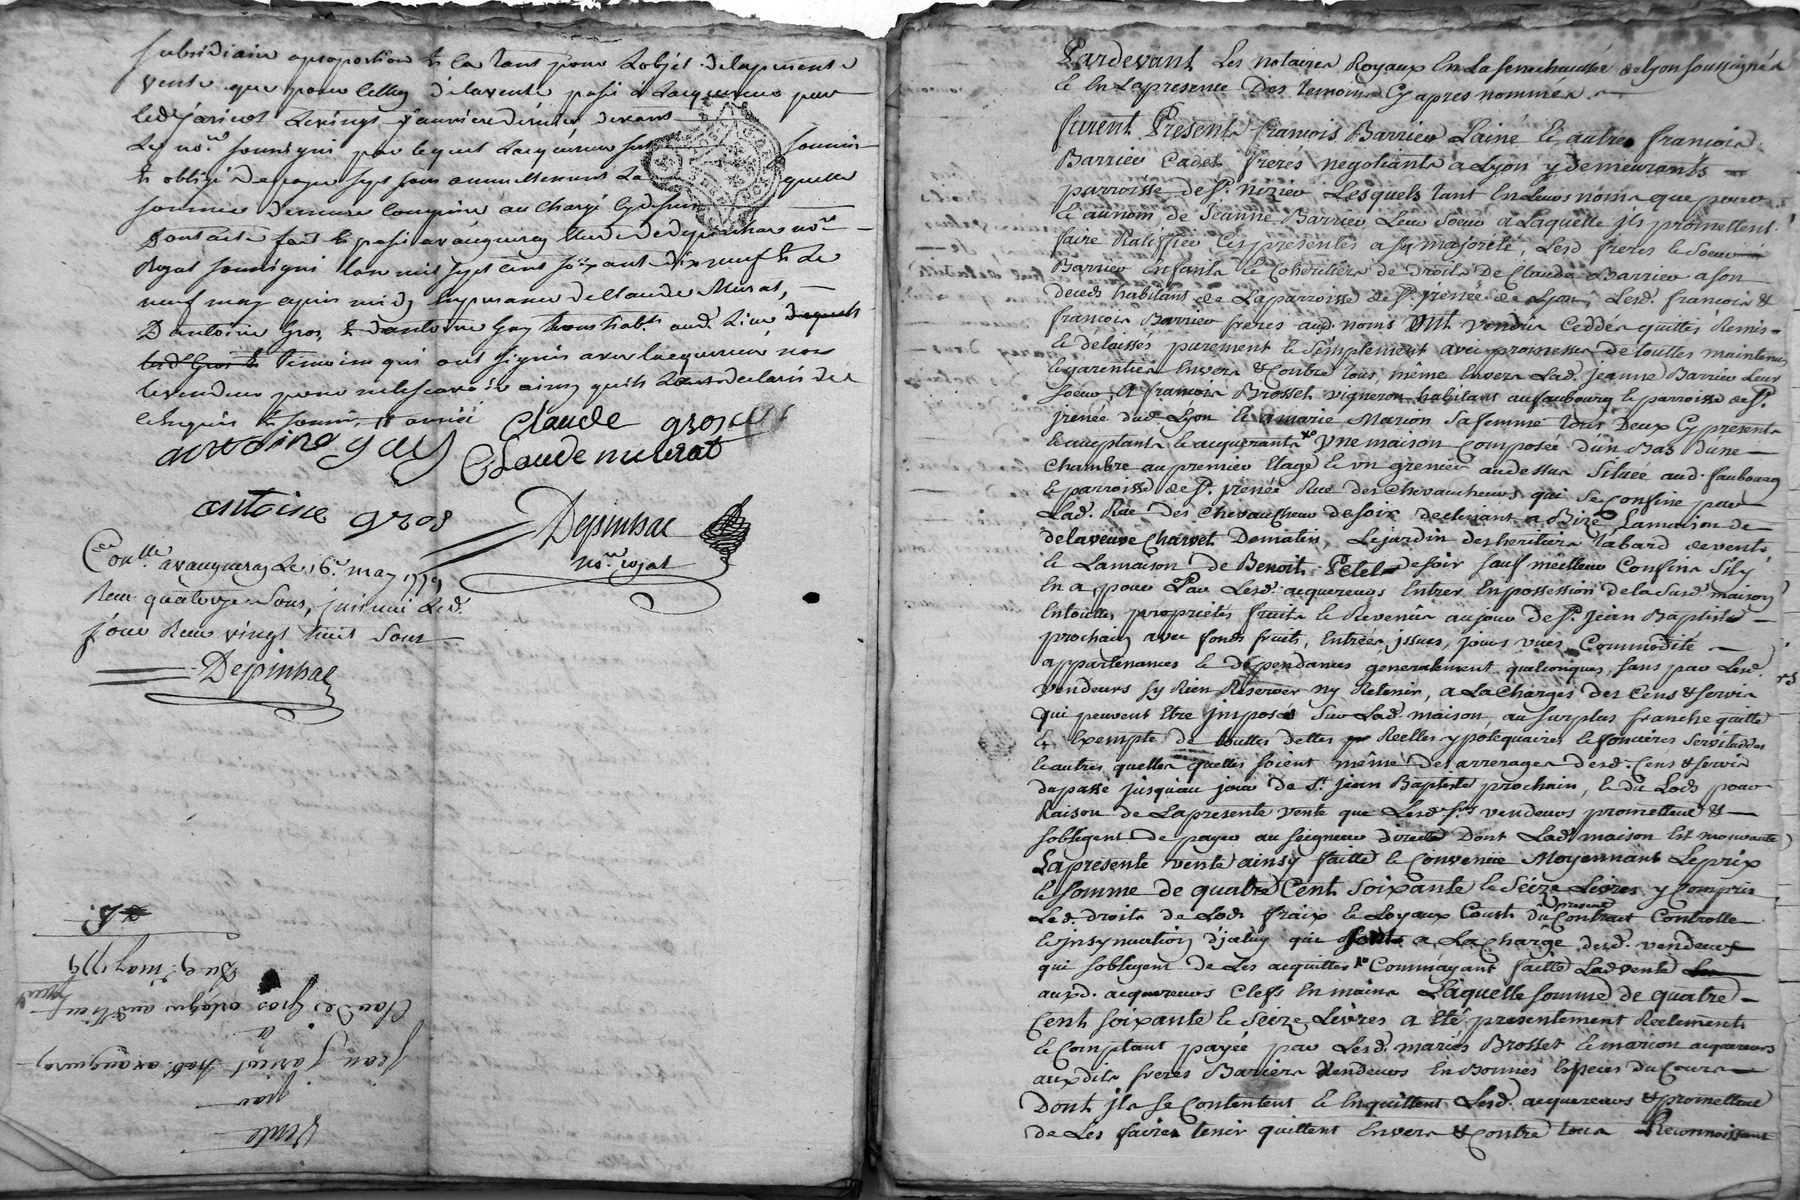 subsidiaire aproportion & ca tant pour Lobjet delapresente
vente que pour celluy delavente passé a Lacquereur par
ledt Jaricot Levingt Janvier dernier devant
Le nore. soussigné par lequel Lacquereur soumis
& obligé depayer sept sous annuellement La quelle
somme demeure comprise au chargé cy dessus
Dont acte fait & passé avaugneray Etude dedepinhac nore
Royal soussigné Lan mil sept cent soixante dix neuf & le
neuf may apres midy En presence de Claude Murat,
D'antoine Gros, & d'antoine Gay tous habts. aud. Lieu
temoins qui ont signés avec lacquereur non
levendeur pour nelescavoir ainsy quils Lont declarés de
cerequis & sommés
Claude gros
antoine gay Claude murat
antoine gros Depinhac
nore. royal
Conlle. avaugneray Le 16e. may 1779
Recu quatorze Sous, jnsinué Led.
jour Recu vingt huit Sous
Depinhac
Vente
par
Jean Jaricot habt. avaugneray
a
Claude Gros
Du 9e. may 1779
Pardevant Les notaires Royaux En La senechaussée de Lyon soussignés
& En Lapresence Des temoins Cy apres nommés
furent Presents francois Barrieu Lainé & autre francois
Barrieu Cadet freres negotiants a Lyon y demeurants
parroisse de St. nizier Lesquels tant En Leurs noms que pour
& au nom de Jeanne Barrieu Leur Soeur a Laquelle jls promettent
faire Ratiffier Ces presentes a sa majorité, Lesd. freres & Soeur
Barrieu Enfants & Coheritiers de droits De Claude Barrieu a son
deceds habitant de La parroisse de St. jrenée de Lyon, Lesd. francois &
francois Barrieu freres aud. noms Ont vendu Ceddés quittés Remis
& delaissés purement & Simplement avec promesse de touttes maintenue
& garentier Envers & Contre tous, même Envers Lad. Jeanne Barrieu Leur
Soeur, A francois Brosset vigneron habitant au faubourg & parroisse de St.
jrenée dud. Lyon & a marie Marion Sa femme tous Deux Cy presents
& acceptants & acquerants Une maison Composée d'un Bas d'une
Chambre au premier Etage & un grenier audessus Située aud. faubourg
& parroisse de St. jrenée Rue des Chevaucheurs qui Se Confine par
Lad. Rue des Chevaucheurs de soir declinant a Bize, Lamaison de
delaveuve Charvet Dematin, Lejardin des heritiers Tabard devent,
& La maison de Benoit Petel de soir sauf meilleurs Confins S'il y
En a, pour Par Lesd. acquereurs Entrer En possession de la Susd. maison
En touttes proprietés fruits & Revenus au jour de St. jean Baptiste
prochain avec fonds fruits, Entrées, jssues, jours, vues, Commodité
appartenances & dependances generalement quelconques, sans par Lesd.
vendeurs s'y Rien Reserver ny Retenir, a La Charges des Cens & servis
qui peuvent Etre jmposés Sur Lad. maison, au surplus franche quitte
& Exempte de touttes dettes Reelles ypotequaires & foncieres servitudes
& autres quelles quelles soient même des arrerages desd. Cens & servis
dupassé jusquau jour de St. jean Baptiste prochain, & du Lods pour
Raison de Lapresente vente que Lesd. frs. vendeurs promettent &
soblegent de payer au seigneur directe Dont Lad. maison Est mouvante
Lapresente vente ainsy faitte & Convenue Moyennant Leprix
& somme de quatre Cent Soixante & Seize Livres y Compris
Led. droits de Lods fraix & Loyaux Couts du present Contract Controlle
& jnsynuation d'jceluy qui sont a La Charge desd. vendeurs
qui soblegent de Les acquitter Commayant faitte Lad. vente
auxd. acquereurs Clefs En mains Laquelle somme de quatre
Cent soixante & Seize Livres a Eté presentement Reelement
& Comptant payée par Lesd. mariés Brosset & marion acquereurs
auxdits freres Bariers Vendeurs En Bonnes Especes du Cours
Dont jls se Contentent & En quittent Lesd. acquereurs & promettent
de Les faires tenir quittent Envers & Contre tous Reconnoissant